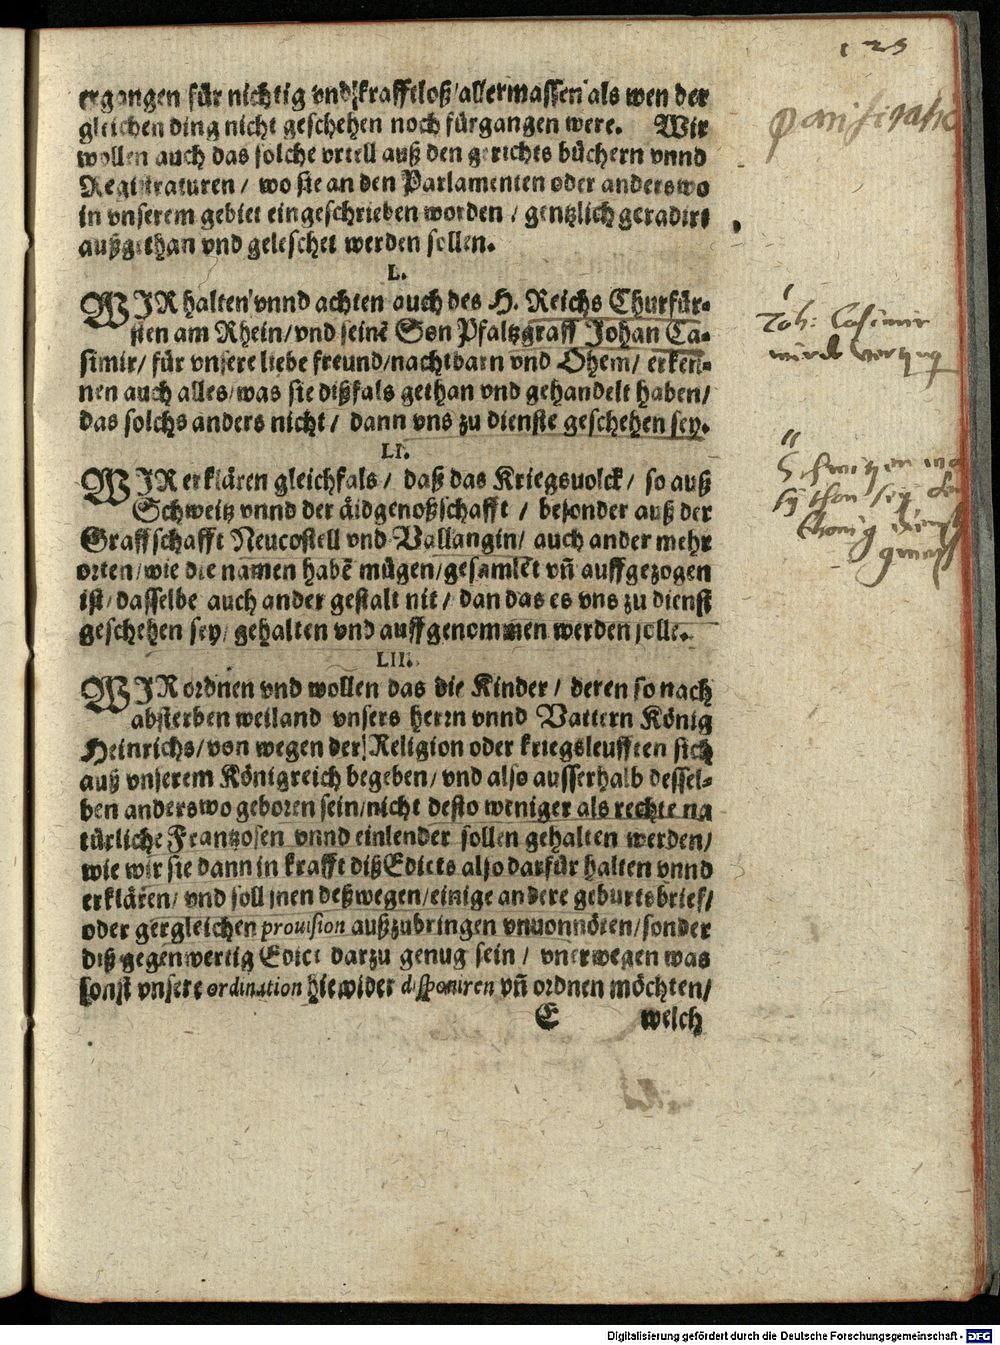 125
ergangen für nichtig vnd krafftloß/allermassen als wen der
gleichen ding nicht geschehen noch fürgangen were. Wir
wollen auch das solche vrtell auß den gerichts büchern vnnd
Registraturen / wo sie an den Parlamenten oder anderswo
in vnserem gebiet eingeschrieben worden / gentzlich geradirt
außgethan vnd geleschet werden sollen.
L.
WIR halten vnnd achten auch des H. Reichs Churfür-
sten am Rhein/vnd seinē Son Pfaltzgraff Johan Ca-
simir/ für vnsere liebe freund/nachtbarn vnd Ohem/ erken-
nen auch alles/was sie dißfals gethan vnd gehandelt haben/
das solchs anders nicht / dann vns zu dienste geschehen sey.
Joh: Casimir
LI.
WIR erklären gleichfals / daß das Kriegsuolck/ so auß
Schweitz vnnd der äidgenoßschafft / besonder auß der
Graffschafft Neucostell vnd Vallangin/ auch ander mehr
orten/wie die namen habē mügen/gesamlēt vñ auffgezogen
ist/dasselbe auch ander gestalt nit / dan das es vns zu dienst
geschehen sey/ gehalten vnd auffgenommen werden solle.
LII.
WIR ordnen vnd wollen das die Kinder / deren so nach
absterben weiland vnsers herrn vnnd Vattern König
Heinrichs/von wegen der Religion oder kriegsleufften sich
auß vnserem Königreich begeben/vnd also ausserhalb dessel-
ben anderswo geboren sein/nicht desto weniger als rechte na
türliche Frantzosen vnnd einlender sollen gehalten werden/
wie wir sie dann in krafft diß Edicts also darfür halten vnnd
erklären/ vnd soll jnen deßwegen/einige andere geburtsbrief/
oder gergleichen prouision außzubringen vnuonnöten/sonder
diß gegenwertig Edict darzu genug sein / vnerwegen was
sonst vnsere ordination hiewider disponiren vñ ordnen möchten/
E welch
Digitalisierung gefördert durch die Deutsche Forschungsgemeinschaft - DFG